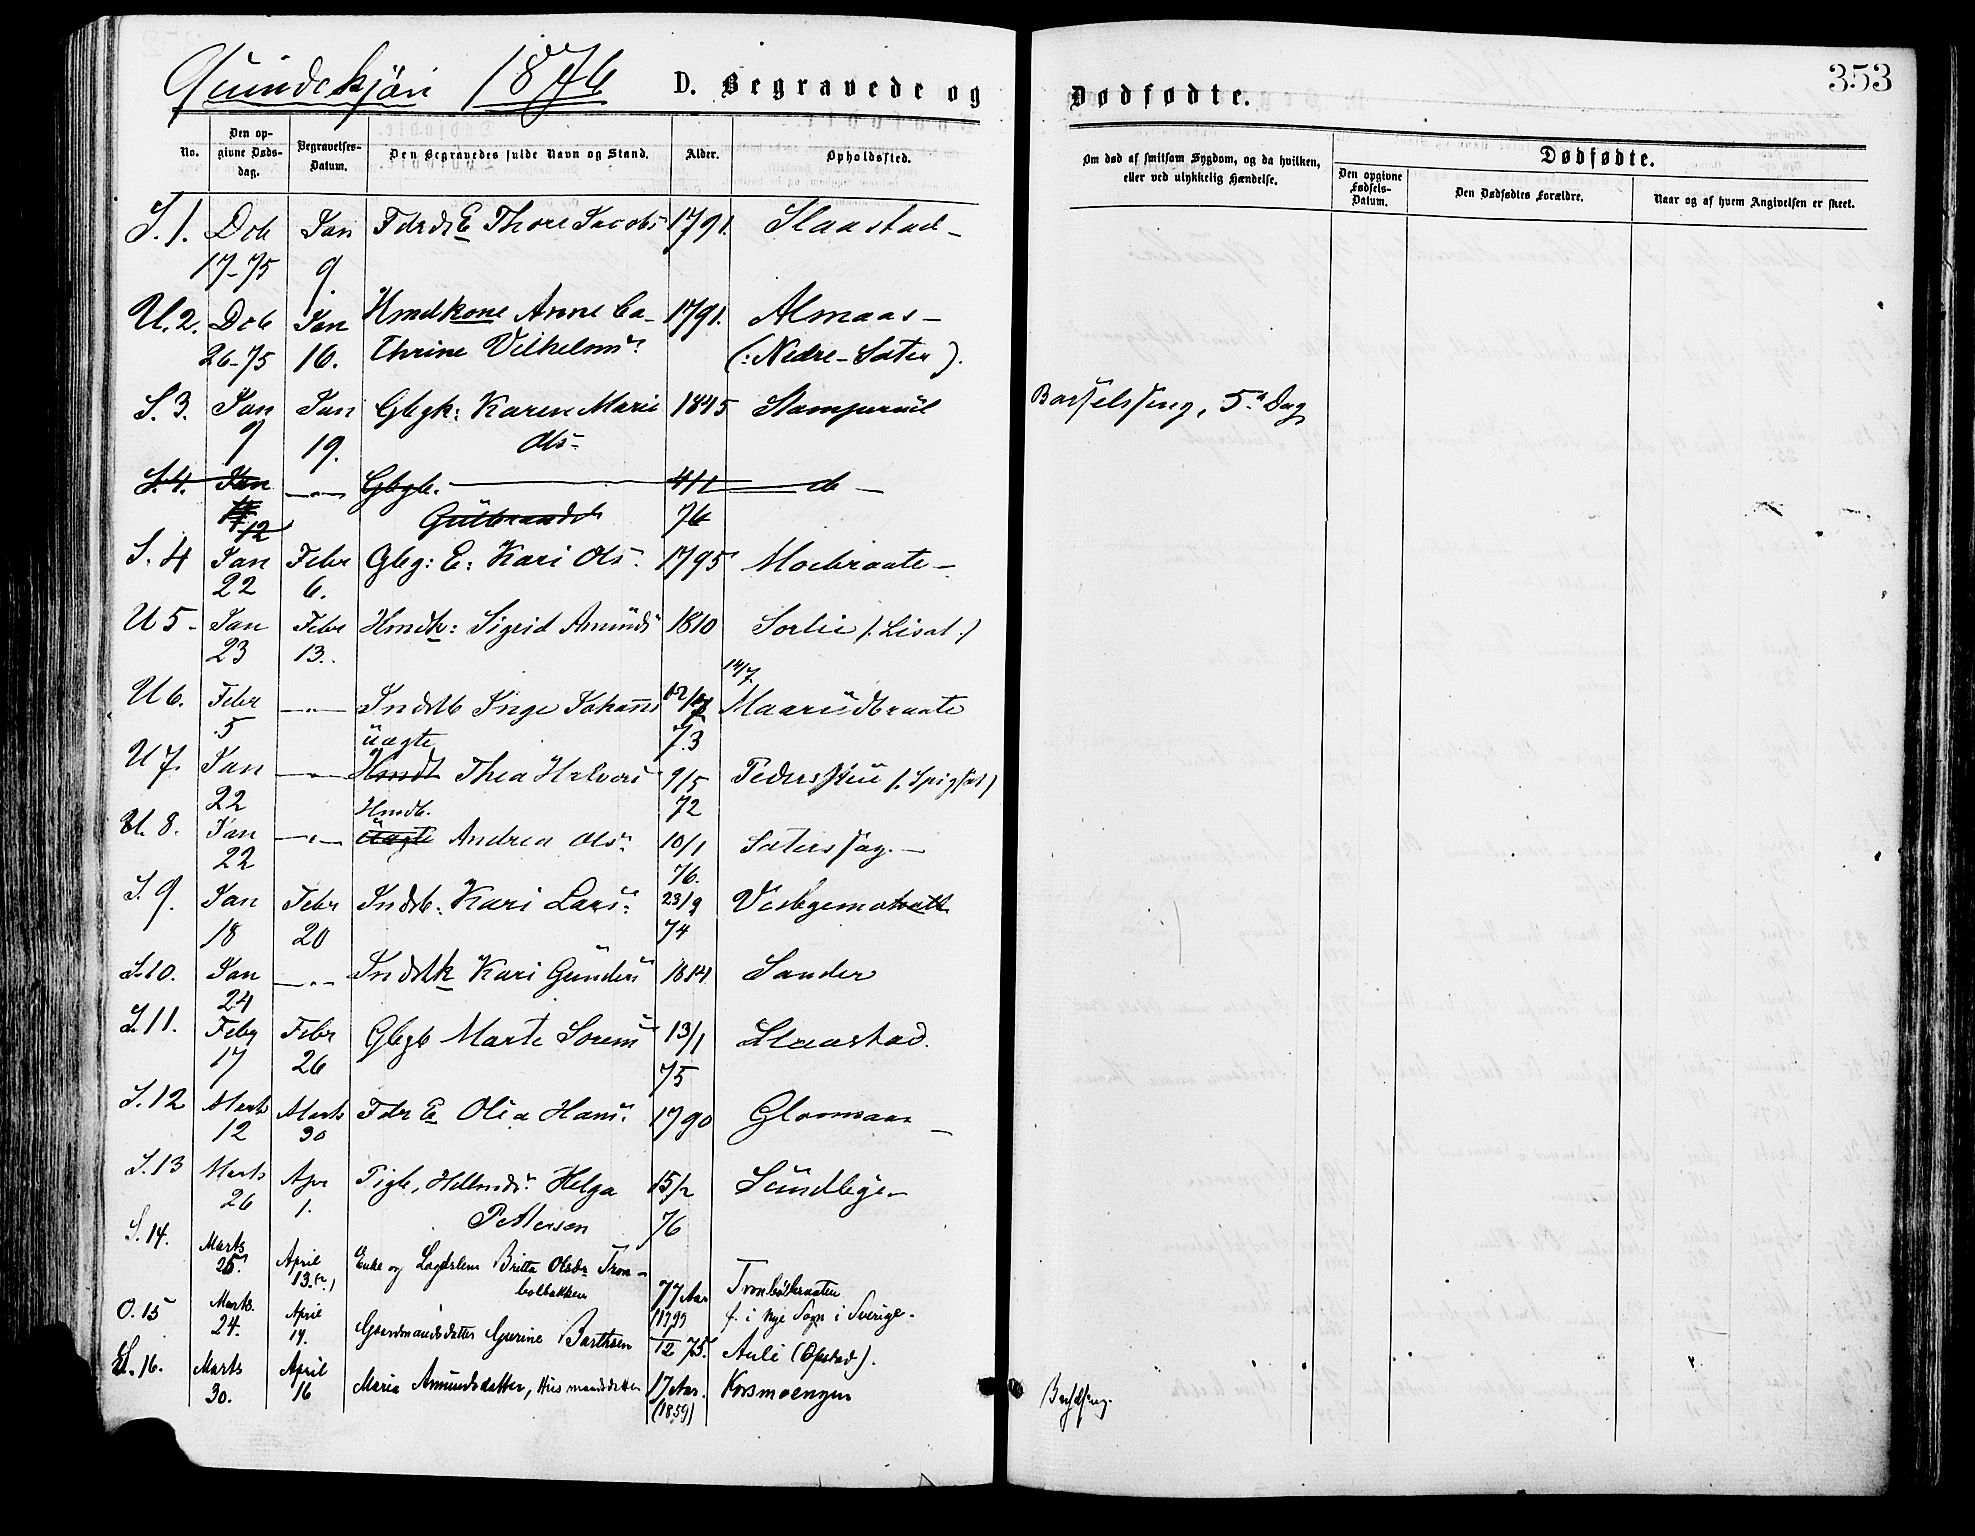 Quindekjön 1876 D. Begravede og Dødfødte. 353
No. Den opgivne Dødsdag. Begravelses-Datum. Den Begravedes fulde Navn og Stand. Alder. Opholdssted. Om død af smitsom Sygdom, og da hvilken, eller ved ulykkelig Hændelse. Dødfødte. Den opgivne Fødsels-Datum. Den Dødfødtes Forældre. Naar og af hvem Angivelsen er skeet.
S. 1. Dcb Jan Fdrds E Thore Jacobs 1791. Slaastad
17-75 9.
U. 2. Dcb Jan Hmdkone Anne Ca- 1791. Almaas
26-75 16. thrine Vilhelms (: Nedre-Sæter).
S. 3. Jan Jan Gbgk: Karen Marie 1845 Stamperud Barselseng, 5 Dag
9 19. Ols
S. 4. Jan — " — Gbgb. 4/1 do
12 Gulbrands 76
S. 4 Jan Febr Gbg: E: Kari Ols 1795 Moebraate
22 6.
U 5 Jan Febr Hmdk: Sigrid Amunds 1810 Sorlie (: Lisæt :)
23 13.
14/7.
U 6. Febr — " — Indstb Inge Johanns Maarudbraate
5 73
uægte
U 7. Jan — " — Hmdb Thea Halvors 9/5 Pedersstuu (: Spigset)
22 72
Hmdb.
U. 8. Jan — " — Uægte Andrea Ols 10/1 Sæterssag
22 76.
S. 9. Jan Febr Indstb: Kari Lars 23/9
18 20 74
S. 10. Jan — " — Indstk Kari Gunders 1814 Sander
24
S. 11. Feby Febr Gbgb Marte Sorens 13/1 Slaastad.
17 26 75
S. 12 Marts Marts Fdr E Olia Hans 1790 Glommaas
12 30
S. 13 Marts Apr Pigb, Helga 15/2 Sundbye
26 1. Pettersen 76
S. 14. Marts April Enke og Lægdslem Britta Olsdr Tron- 77 Aar Tronbølbraaten
25. 13. bølbakken (1799 f. i Nye Sogn i Sverige.
O. 15 Marts April Gaardmandsdatter Gurine Barthsen /12 75. Auli (Opstad).
24. 14.
S. 16. Marts April Maria Amundsdatter, Husmandsdatter 17 Aar. Korsmoengen Barselseng.
30. 16 (1859)